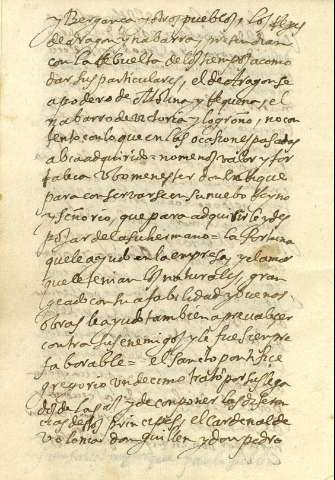 y Berganca y otros pueblos, los Reyes
de aragon y nabarra pretendian
con la rebuelta de los tiempos acomo
dar sus particulares, el de aragon se
apodero de Molina y Requena, el
nabarro de victoria y logroño, no con
tento con lo que en las ocasiones pasadas
abia adquirido = no menos valor y for
taleza ubo menester don Enrrique
para conserbarse en su nuebo Reyno
y señorio, que para adquirirle y des
pojar del a su hermano = la fortuna
que le ayudo en la empresa, y el amor
que le tenian los naturales, gran
geado con su afabilidad y buenas
obras le ayudo tambien a prevalecer
contra sus enemigos y le fue siempre
faborable = el santo pontifice
gregorio undecimo trató por sus lega
dos de las paz y de componer las diferen
cias destos principes, el cardenal de
volonia don guillen y don pedro